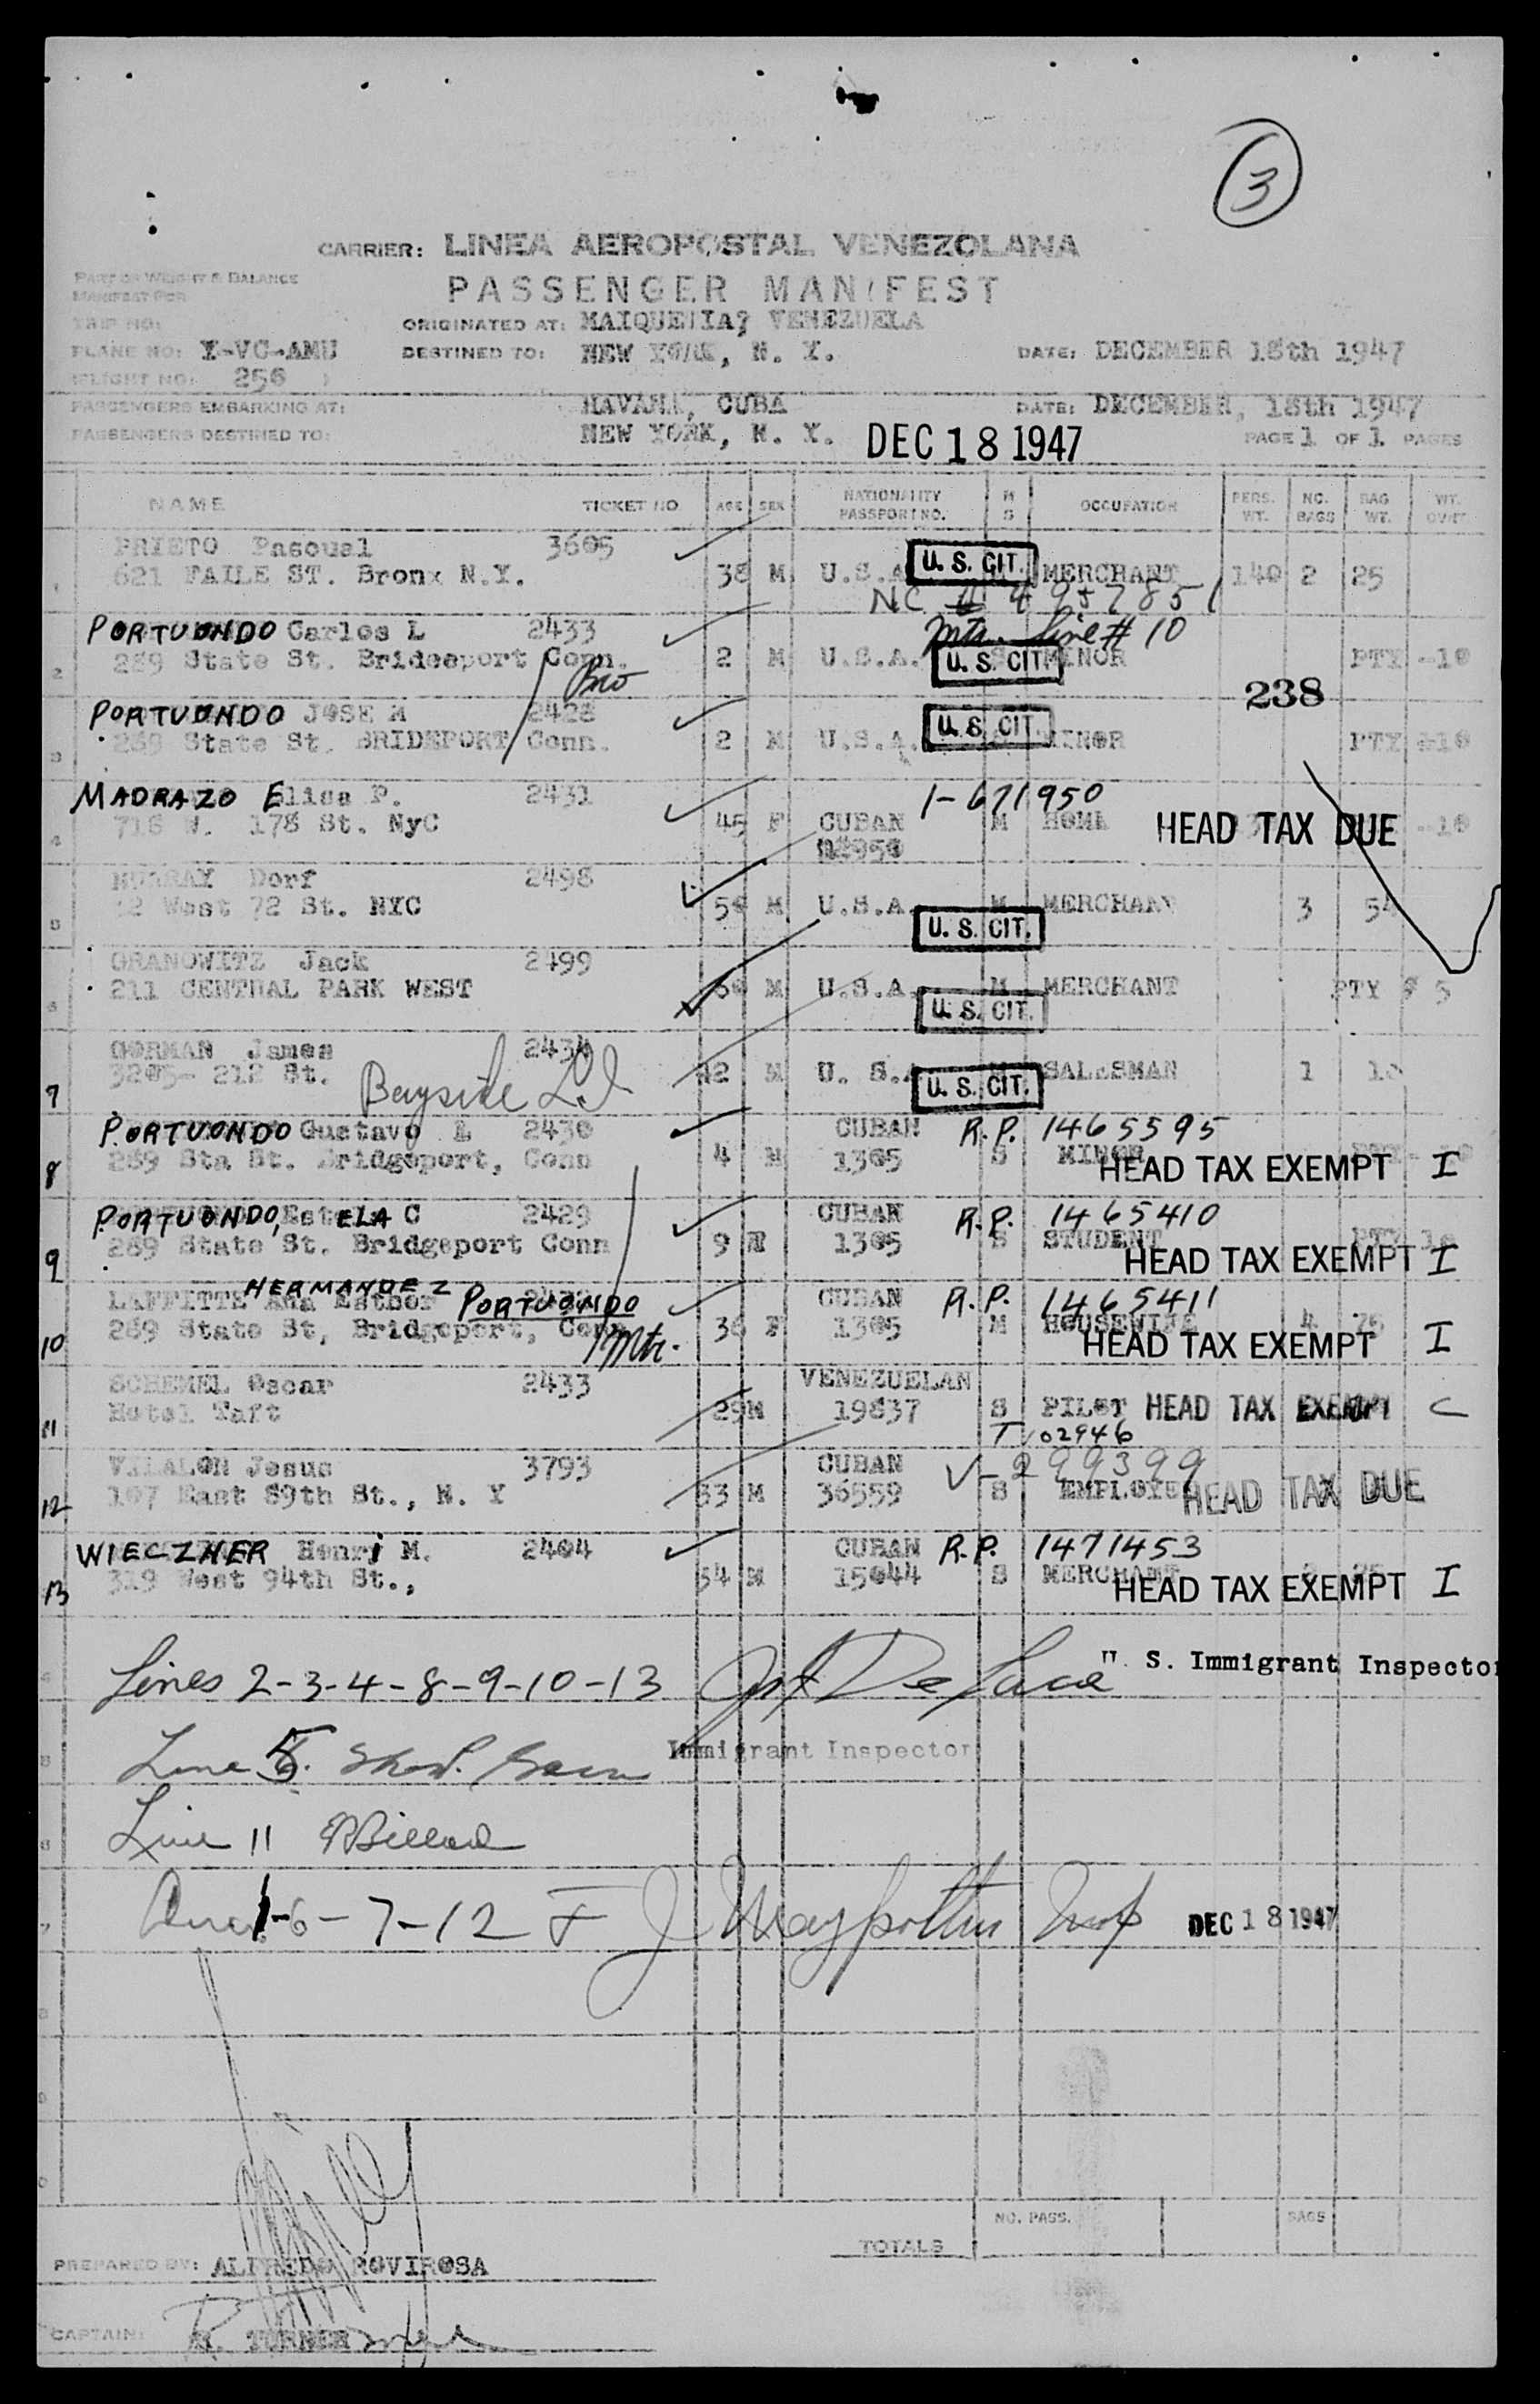 3
CARRIER: LINEA AEROPOSTAL VENEZOLANA
PART OF WEIGHT & BALANCE
MANIFEST FOR
PASSENGER MANIFEST
TRIP NO:
ORIGINATED AT: MAIQUETIA, VENEZUELA
PLANE NO: Y-VC-AMU
DESTINED TO: NEW YORK, N. Y.
DATE: DECEMBER 18th 1947
FLIGHT NO: 256
PASSENGERS EMBARKING AT: HAVANA, CUBA
DATE: DECEMBER, 18th 1947
PASSENGERS DESTINED TO: NEW YORK, N. Y. DEC 18 1947
PAGE 1 OF 1 PAGES
NAME TICKET NO AGE SEX NATIONALITY PASSPORT NO. M S OCCUPATION PERS. WT. NO. BAGS BAG WT. WT. OVWT.
PRIETO Pascual 3605
1 621 FAILE ST. Bronx N.Y. 38 M U.S.A. U. S. CIT. MERCHANT 140 2 25
NC # 4957851
PORTUONDO Carlos L 2433 mtr. line # 10
2 289 State St. Bridgeport Conn. 2 M U.S.A. U. S. CIT. MINOR PTY -10
Bro 238
PORTUONDO JOSE M 2428
3 289 State St. BRIDEPORT Conn. 2 M U.S.A. U. S. CIT. MINOR PTY -10
MADRAZO Elisa P. 2431 1-671950
4 716 W. 178 St. NyC 45 F CUBAN M HOME HEAD TAX DUE -10
MURRAY Dorf 2498
5 12 West 72 St. NYC 50 M U.S.A. M MERCHANT 3 54
U. S. CIT.
GRANOWITZ Jack 2499
6 211 CENTRAL PARK WEST M U.S.A. M MERCHANT PTY 5
U. S. CIT.
GORMAN James 2434
7 3205- 212 St. Bayside L.I. 42 M U. S.A. U. S. CIT. SALESMAN 1 10
PORTUONDO Gustavo L 2430 CUBAN R.P. 1465595
8 289 Sta St. Bridgeport, Conn 4 M 1305 S MINOR HEAD TAX EXEMPT I
PORTUONDO, Estela C 2429 CUBAN R.P. 1465410
9 289 State St. Bridgeport Conn 9 F 1305 S STUDENT PTY
HEAD TAX EXEMPT I
LAFFITTE HERMANDEZ Ana Esthor PORTUONDO CUBAN R.P. 1465411
10 289 State St, Bridgeport, Conn Mtr. 36 F 1305 M HOUSEWIFE 4 75
HEAD TAX EXEMPT I
SCHEMEL Oscar 2433 VENEZUELAN
11 Hotel Taft 29 M 19837 S PILOT HEAD TAX EXEMPT C
T 102946
VILALON Jesus 3793 CUBAN V-299399
12 107 East 89th St., N. Y 33 M 36559 S EMPLOYEE HEAD TAX DUE
WIECZNER Henri M. 2404 CUBAN R.P. 1471453
13 319 West 94th St., 54 M 15044 S MERCHANT HEAD TAX EXEMPT I
Lines 2-3-4-8-9-10-13 S. Immigrant Inspector
Line 5. Immigrant Inspector
Line 11
1-6-7-12 DEC 18 1947
NO. PASS. BAGS
TOTALS
PREPARED BY: ALFREDO ROVIROSA
CAPTAIN: TURNER